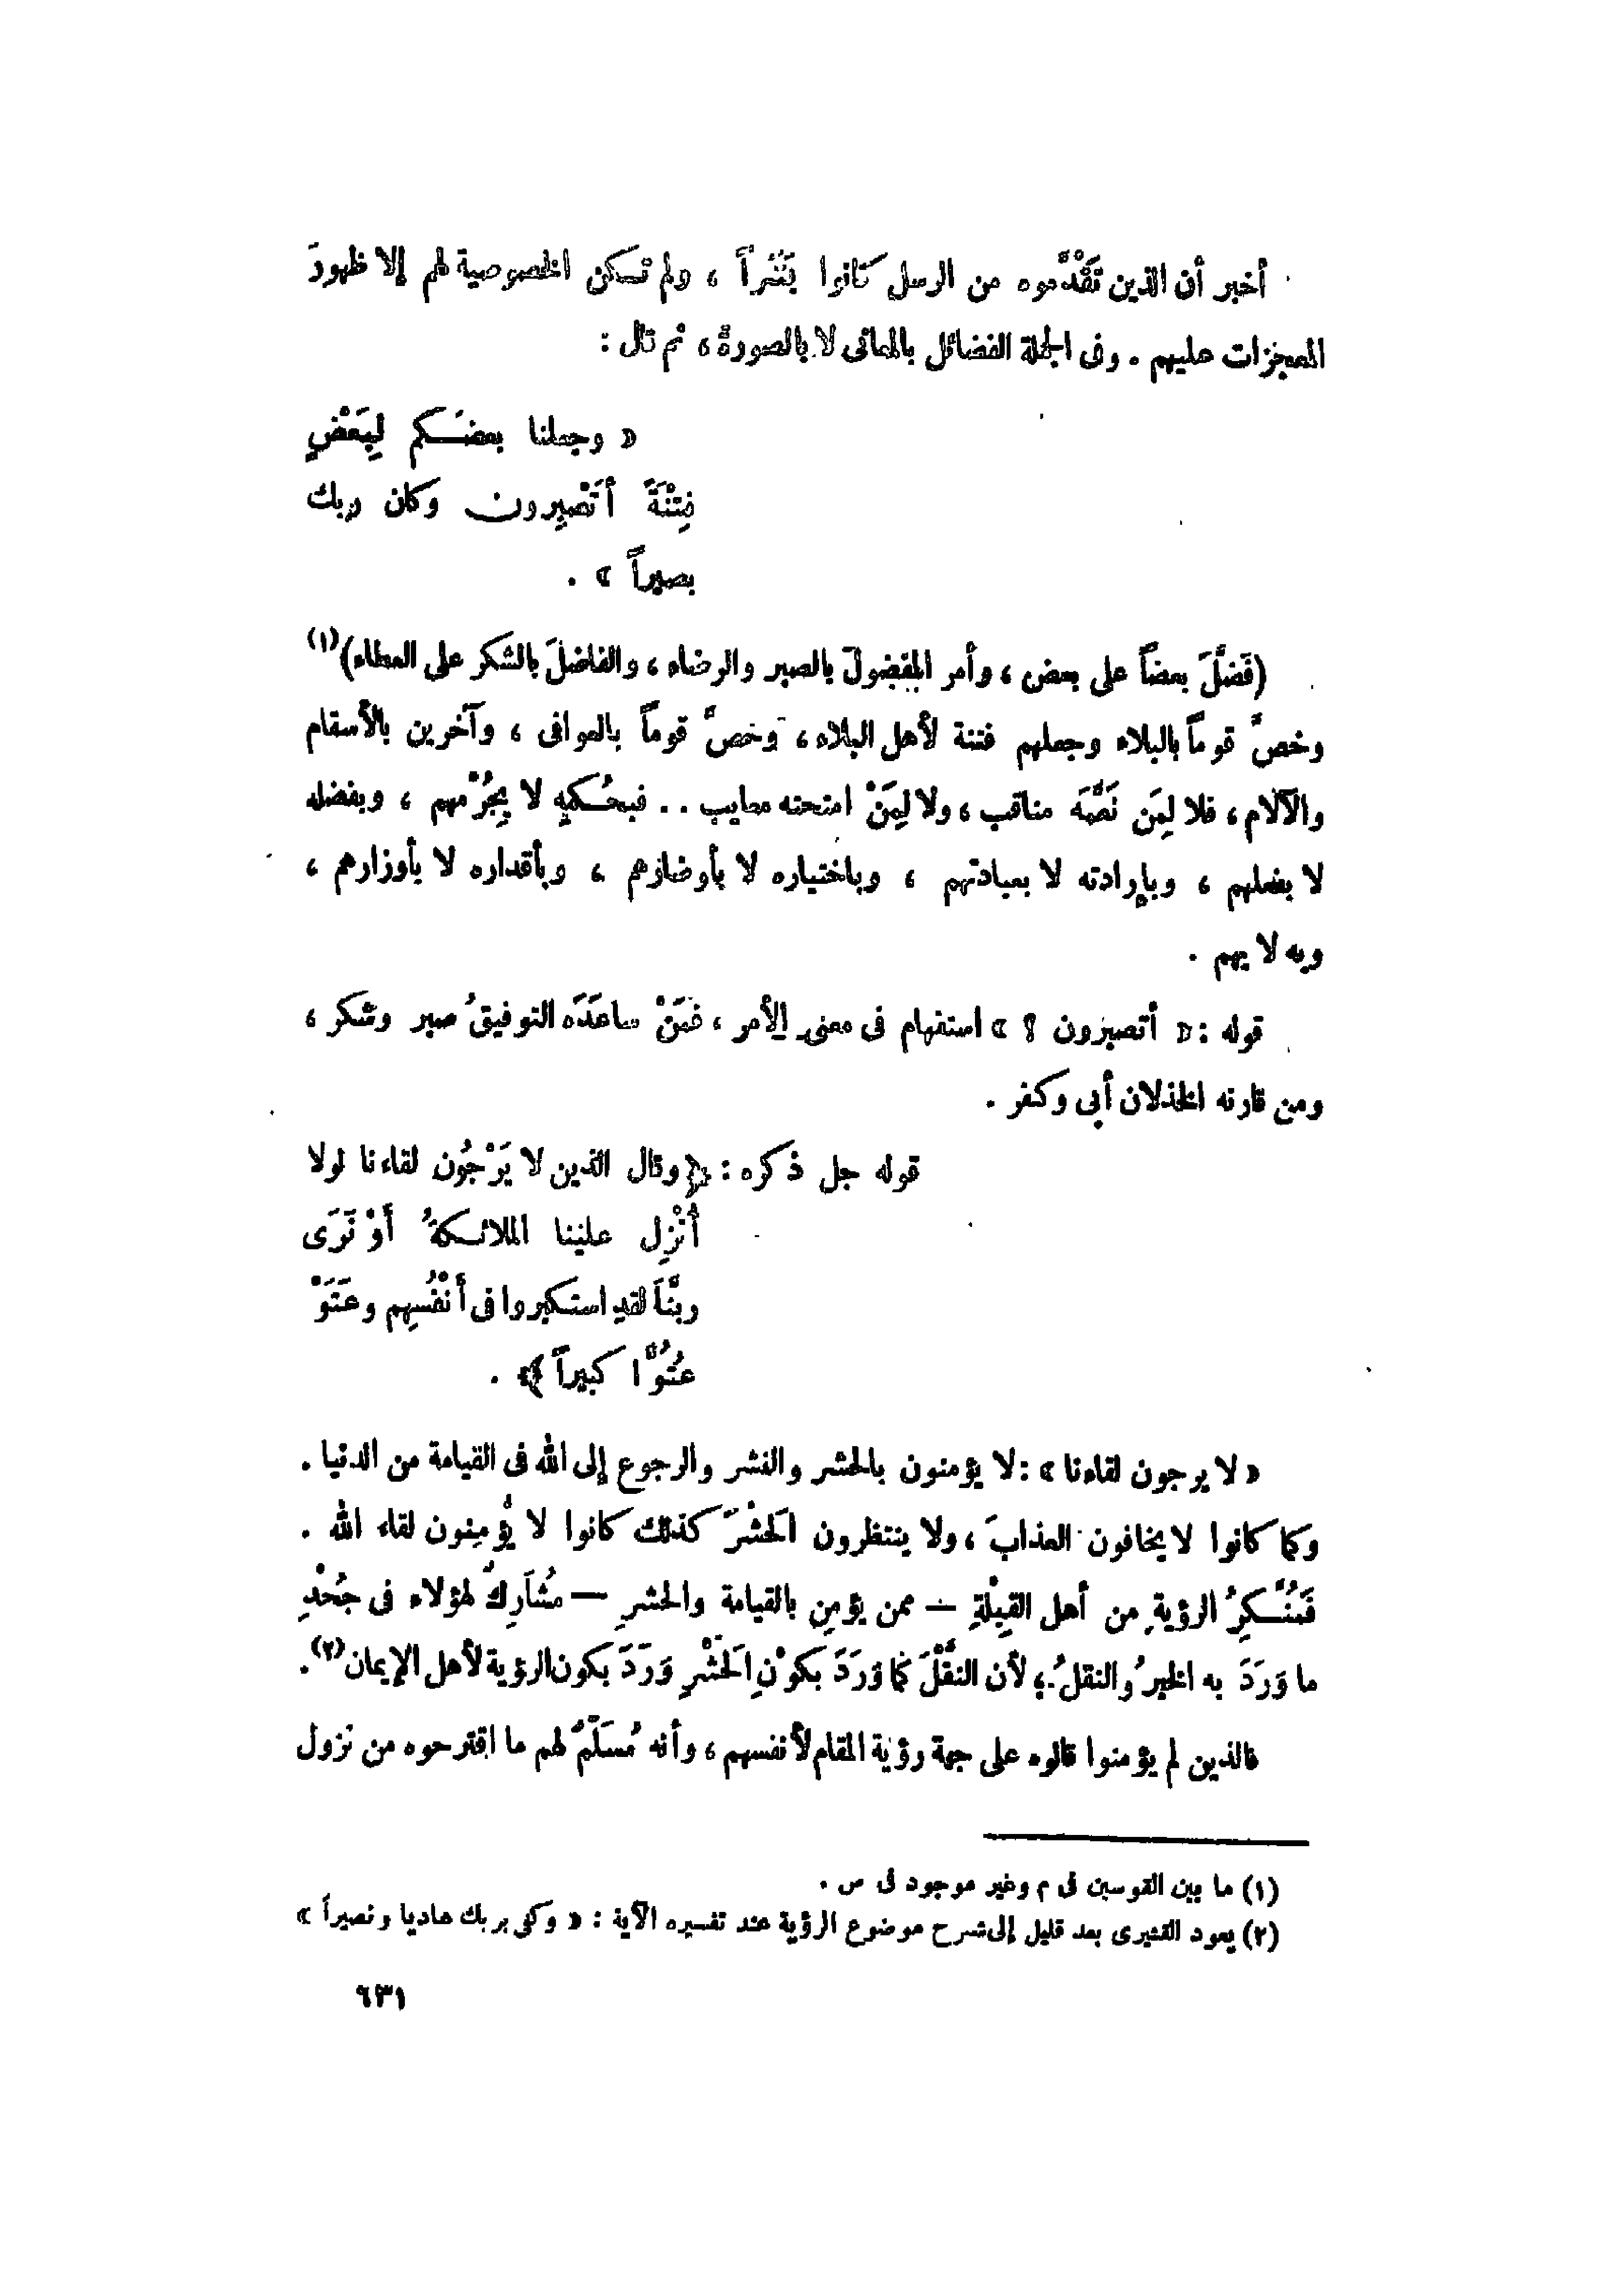 أخبر أن الذين تَقَدَّموه من الرسل كانوا بَشَراً ، ولم تكن الخصوصية لهم إلا ظهورَ
المعجزات عليهم . وفى الجملة الفضائل بالمعانى لا بالصورة ، ثم قال :
« وجعلنا بعضَكم لِبَعْضٍ
فِتْنَةً أَتَصْبِرون وكان ربك
بصيراً » .
(فَضَّلَ بعضاً على بعض ، وأمر المفضولَ بالصبر والرضاء ، والفاضلَ بالشكر على العطاء)(١)
وخصَّ قوماً بالبلاء وجعلهم فتنة لأهل البلاء ، وخصَّ قوماً بالعوافى ، وآخرين بالأسقام
والآلام ، فلا لِمَن نَعَّمَه مناقب ، ولا لِمَنْ امتحنه معايب . . فبحُكمِهِ لا بِجُرْمهم ، وبفضله
لا بفعلهم ، وبإرادته لا بعبادتهم ، وباختياره لا بأوضارهم ، وبأقداره لا بأوزارهم ،
وبه لا بهم .
قوله : « أتصبرون ؟ » استفهام فى معنى الأمر ، فمَنْ ساعَدَه التوفيقُ صبر وشكر ،
ومن قارنه الخذلان أبى وكفر .
قوله جل ذكره : ﴿وقال الذين لا يَرْجُون لقاءنا لولا
أُنْزِل علينا الملائكةُ أَوْ نَرَى
ربَّنَا لقد استكبروا فى أَنْفُسِهم وعَتَوْ
عُتُوًّا كبيراً﴾ .
« لا يرجون لقاءنا » : لا يؤمنون بالحشر والنشر والرجوع إلى الله فى القيامة من الدنيا .
وكما كانوا لا يخافون العذابَ ، ولا ينتظرون الحَشْرَ كذلك كانوا لا يُؤْمِنون لقاء الله .
فَمُنْكِرُ الرؤيةِ من أهل القِبْلةِ – ممن يؤمِن بالقيامة والحشرِ – مُشَارِكٌ لهؤلاء فى جُحْدِ
ما وَرَدَ به الخبرُ والنقلُ ؛ لأن النقْلَ كما وَرَدَ بكوْنِ الحَشْرِ وَرَدَ بكون الرؤية لأهل الإيمان(٢) .
فالذين لم يؤمنوا قالوه على جهة رؤية المقام لأنفسهم ، وأنه مُسَلَّمٌ لهم ما اقترحوه من نزول
(١) ما بين القوسين فى م وغير موجود فى ص .
(٢) يعود القشيرى بعد قليل إلى شرح موضوع الرؤية عند تفسيره الآية : « وكفى بربك هاديا ونصيراً »
٦٣١